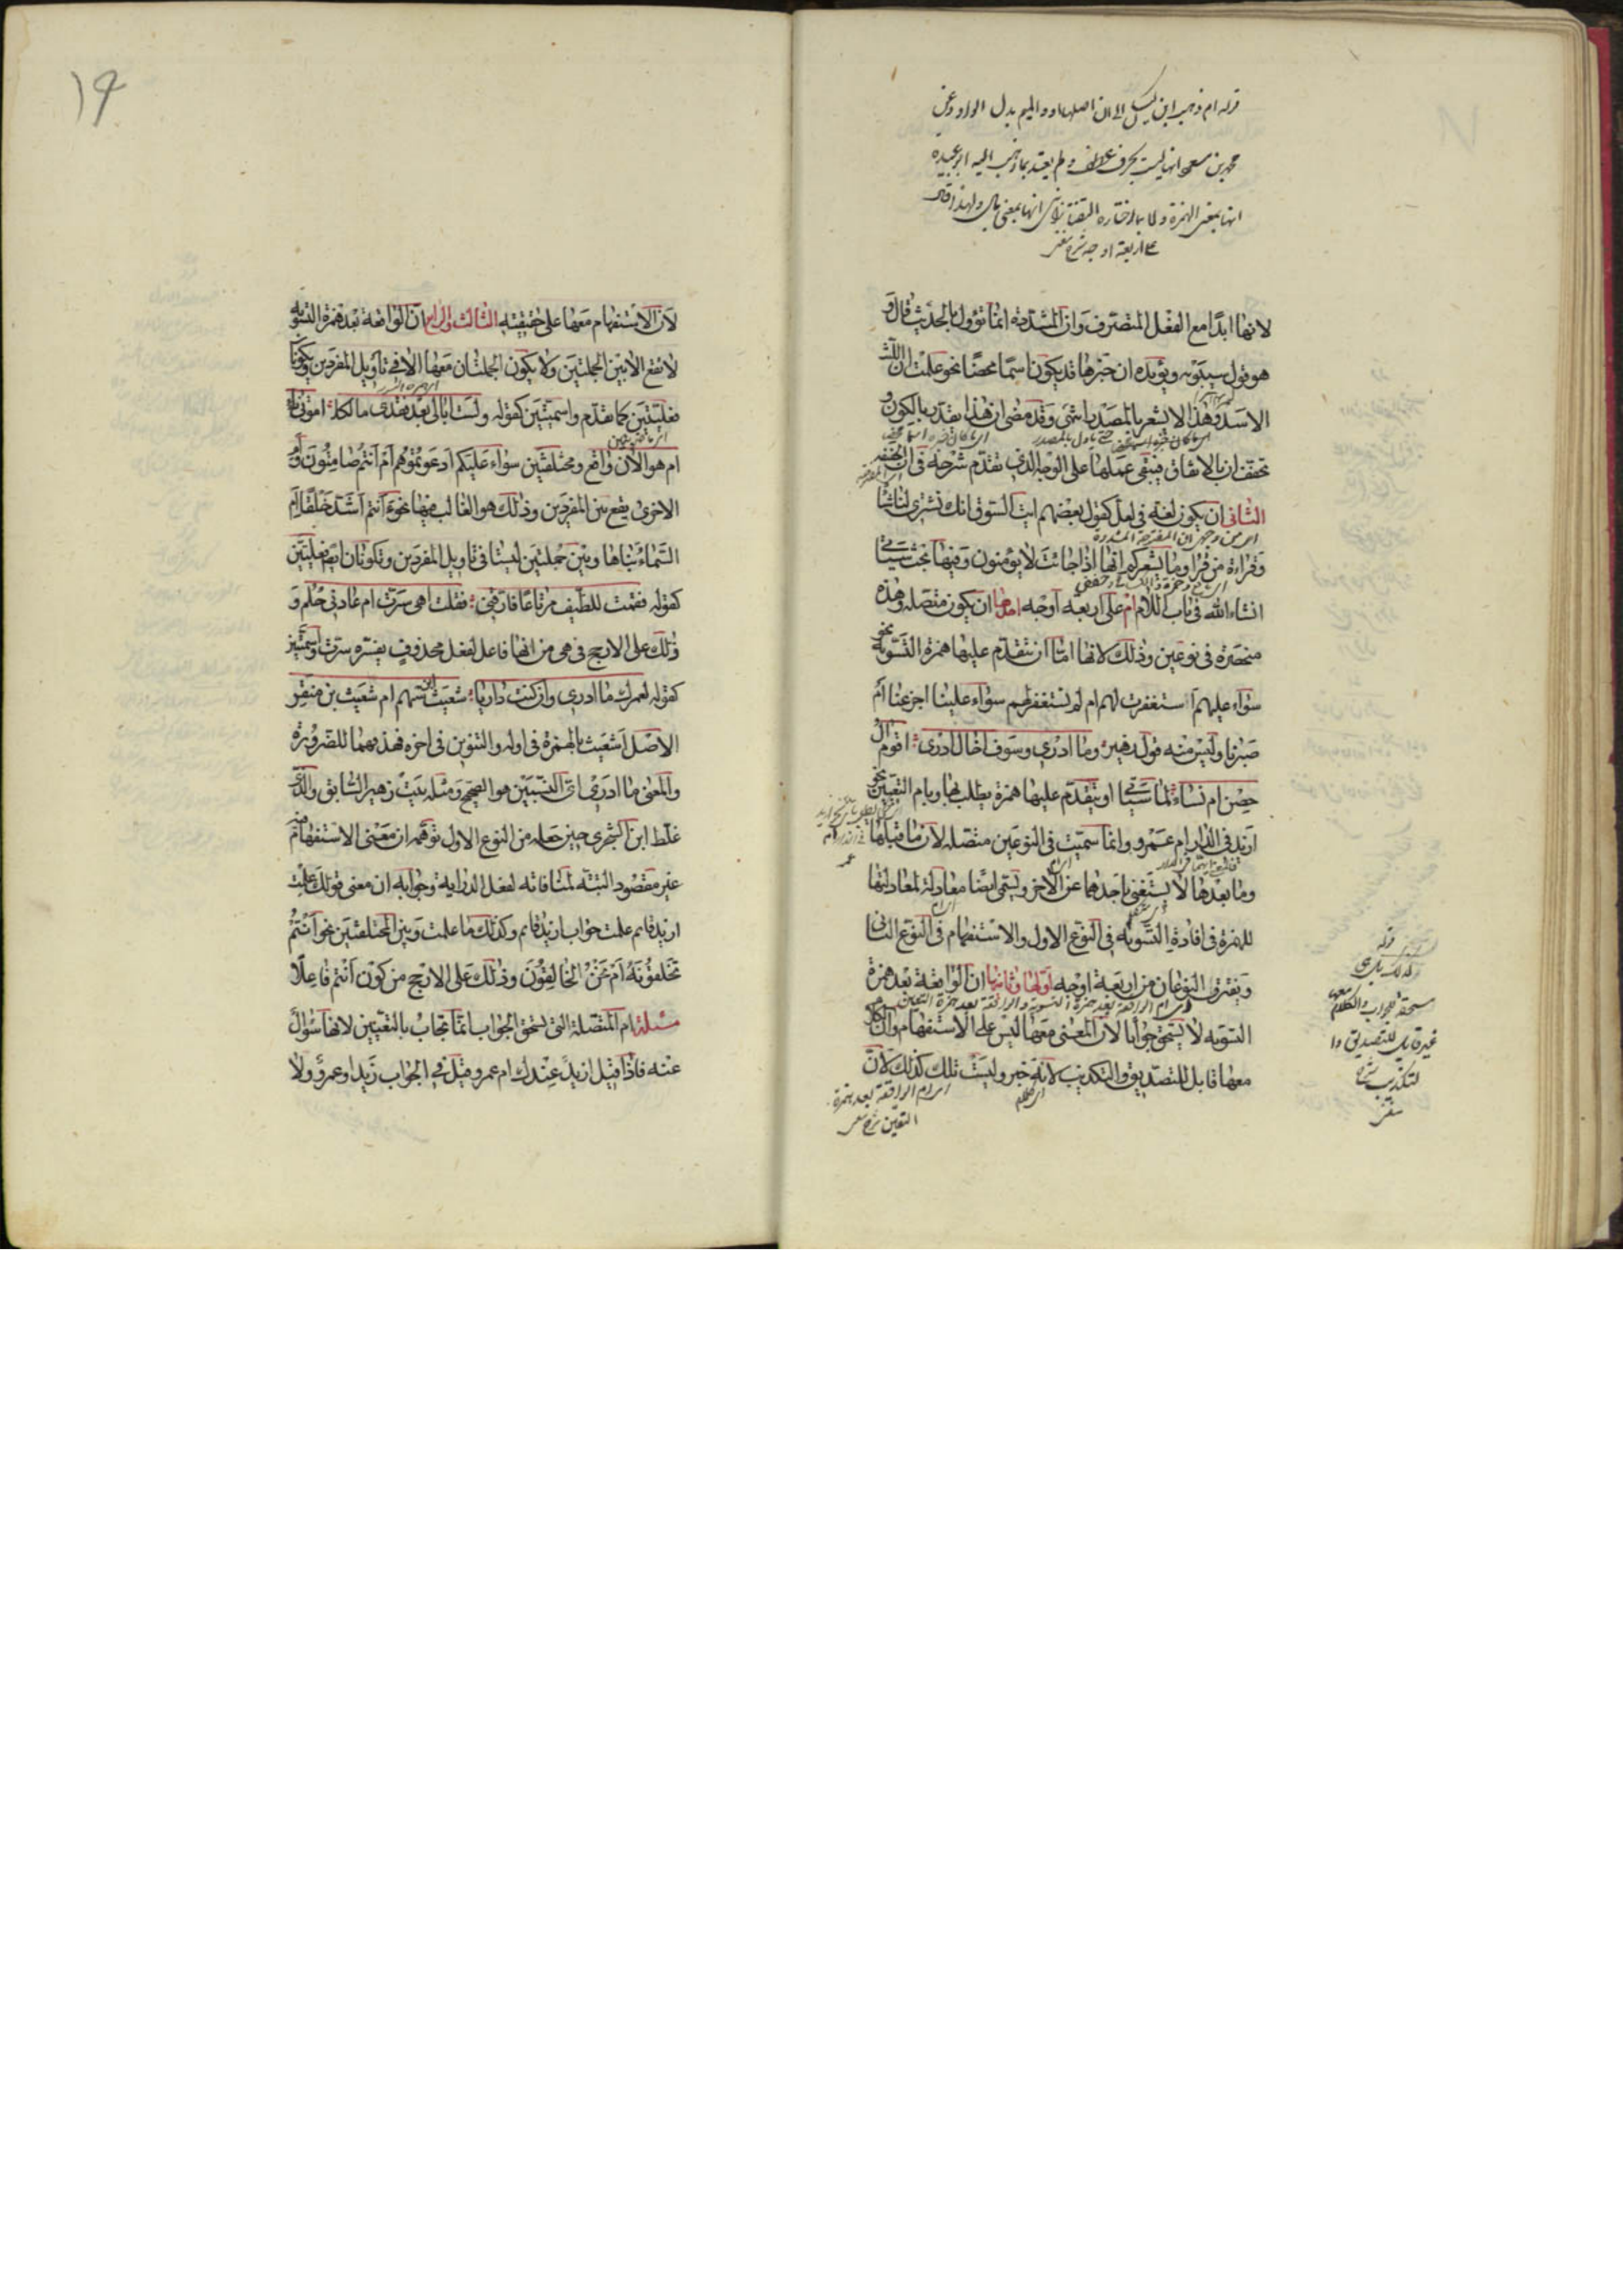 قوله ام ذهب ابن كيسان الى ان اصلها او والميم بدل الواو وعن
محمد بن مسعود انها ليست بحرف عطف ولم يعتد بما ذهب اليه ابو عبيدة
انها بمعنى الهمزة ولا بما اختاره انها بمعنى بل ولهذا قال
على اربعة اوجه شرح مغنى
لانها ابدًا مع الفعل المتصرف وان المشددة انما تؤول بالحديث قال و
هو قول سيبويه ويؤيده ان خبرها قد يكون اسمًا محضًا نحو علمت ان الليث
الاسد وهذا لا يشعر بالمصدر انتهى وقد مضى ان هذا يقدر بالكون و
تخفف ان بالاتفاق فيبقى عملها على الوجه الذي تقدم شرحه في ان الخفيفه
الثانى ان يكون لغة في لعل كقول بعضهم ايت السوق انك تشترى لنا شيًا
وقراءة من قرا وما يشعركم انها اذا جائت لا يؤمنون وفيها بحث سياتى
انشاء الله في باب اللام ام على اربعة اوجه احدها ان يكون متصله وهذه
منحصرة في نوعين وذلك لانها اما ان تتقدم عليها همزة التسوية نحو
سواء عليهم استغفرت لهم ام لم تستغفر لهم سواء علينا اجزعنا ام
صبرنا وليس منه قول زهير وما ادرى وسوف اخال ادرى اقوم ال
حصن ام نساء لما سياتى او يتقدم عليها همزة يطلب بها وبام التعيين نحو
ازيد في الدار ام عمرو وانما سميت في النوعين متصله لان ما قبلها
وما بعدها لا يستغنى باحدهما عن الاخر ويسمى ايضا معادلة لمعادلتها
للهمزة في افادة التسويه في النوع الاول والاستفهام في النوع الثانى
ويفترق النوعان من اربعة اوجه اولها وثانيها ان الواقعة بعد همزة
التسويه لا يستحق جوابا لان المعنى معها ليس على الاستفهام وان الكلام
معها قابل للتصديق والتكذيب لانه خبر وليست تلك كذلك لان
اى ام الواقعة بعد همزة
التعيين شرح مغنى
قوله
وليست تلك
مستحقة للجواب والكلام معها
غير قابل للتصديق ولا
لتكذيب شرح
مغنى
١٩
لان الاستفهام معها على حقيقته الثالث والرابع ان الواقعة بعد همزة التسويه
لا تقع الا بين الجملتين ولا يكون الجملتان معها الا في تاويل المفردين ويكونان
فعليتين كما تقدم واسميتين كقوله ولست ابالى بعد فقدى مالكا اموتى ناء
ام هو الان واقع ومختلفتين سواء عليكم ادعوتموهم ام انتم صامتون وام
الاخرى يقع بين المفردين وذلك هو الغالب فيها نحو ءانتم اشد خلقًا ام
السماء بناها وبين جملتين ليستا في تاويل المفردين وتكونان ايضا فعليتين
كقوله فقمت للطيف مرتاعًا فارقنى فقلت اهى سرت ام عادنى حلم و
ذلك على الارجح في هى من انها فاعل لفعل محذوف يفسره سرت واسميتين
كقوله لعمرك ما ادرى وان كنت داريا شعيث ابن سهم ام شعيث بن منقر
الاصل اشعيث بالهمزة في اوله والتنوين في اخره فحذفهما للضرورة
والمعنى ما ادرى اى النسبتين هو الصحيح ومثله بيت زهير السابق والذى
غلط ابن الشجرى حين جعله من النوع الاول توهمه ان معنى الاستفهام فيه
غير مقصود البتة لمنافاته لفعل الدراية وجوابه ان معنى قولك علمت
ازيد قائم علمت جواب ازيد قائم وكذلك ما علمت وبين المختلفتين نحو ءانتم
تخلقونه ام نحن الخالقون وذلك على الارجح من كون انتم فاعلًا
مسئلة ام المتصلة التى تستحق الجواب انما تجاب بالتعيين لانها سؤال
عنه فاذا قيل ازيد عندك ام عمرو قيل في الجواب زيد او عمرو ولا